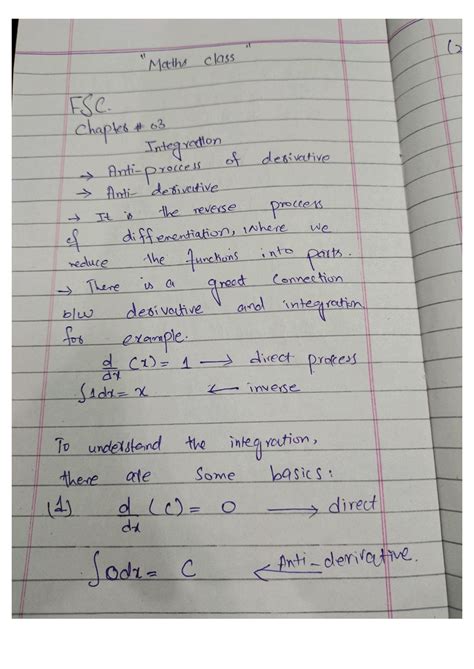 "Maths class"
FSC.
Chapter # 03
Integration
→ Anti-proccess of derivative
→ Anti-derivative
→ It is the reverse proccess
of differentiation, where we
reduce the functions into parts.
→ There is a great connection
b/w derivative and integration
for example.
d/dx (x) = 1 → direct process
∫1dx = x ← inverse
To understand the integration,
there are some basics:
(1) d/dx (c) = 0 → direct
∫0dx = C ← Anti-derivative.